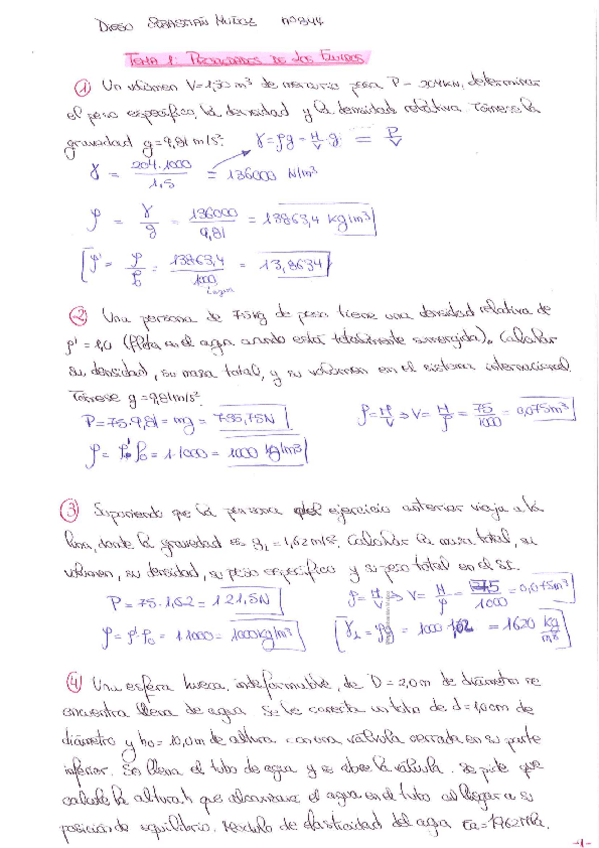 DIEGO SEBASTIÁN MUÑOZ nº 844
TEMA 1: PROPIEDADES DE LOS FLUIDOS
① Un volumen V=1,50 m³ de mercurio pesa P = 204 kN, determinar
el peso específico, la densidad y la densidad relativa. Tómese la
gravedad g=9,81 m/s². γ = ρg = M/V · g = P/V
γ = 204·1000 / 1,5 = 136000 N/m³
ρ = γ/g = 136000 / 9,81 = 13863,4 kg/m³
ρ' = ρ/ρ₀ = 13863,4 / 1000 = 13,8634
② Una persona de 75 kg de peso tiene una densidad relativa de
ρ' = 1,0 (flota en el agua cuando está totalmente sumergida). Calcular
su densidad, su masa total, y su volumen en el sistema internacional.
Tómese g=9,81 m/s².
P=75·9,81 = mg = 735,75N ρ = M/V ⇒ V = M/ρ = 75/1000 = 0,075m³
ρ = ρ' ρ₀ = 1·1000 = 1000 kg/m³
③ Suponiendo que la persona del ejercicio anterior viaja a la
luna, donde la gravedad es g₁ = 1,62 m/s². Calcular la masa total, su
volumen, su densidad, su peso específico y su peso total en el S.I.
P = 75·1,62 = 121,5N ρ = M/V ⇒ V = M/ρ = 75/1000 = 0,075m³
ρ = ρ' ρ₀ = 1·1000 = 1000kg/m³ γ₁ = ρg = 1000·1,62 = 1620 kg/m³
④ Una esfera hueca, indeformable, de D = 2,0m de diámetro se
encuentra llena de agua. Se le conecta un tubo de d = 1,00cm de
diámetro y h₀ = 10,0m de altura con una válvula cerrada en su parte
inferior. Se llena el tubo de agua y se abre la válvula. Se pide que
calcule la altura h que alcanzará el agua en el tubo al llegar a su
posición de equilibrio. Módulo de elasticidad del agua Ea = 1962MPa.
-1-